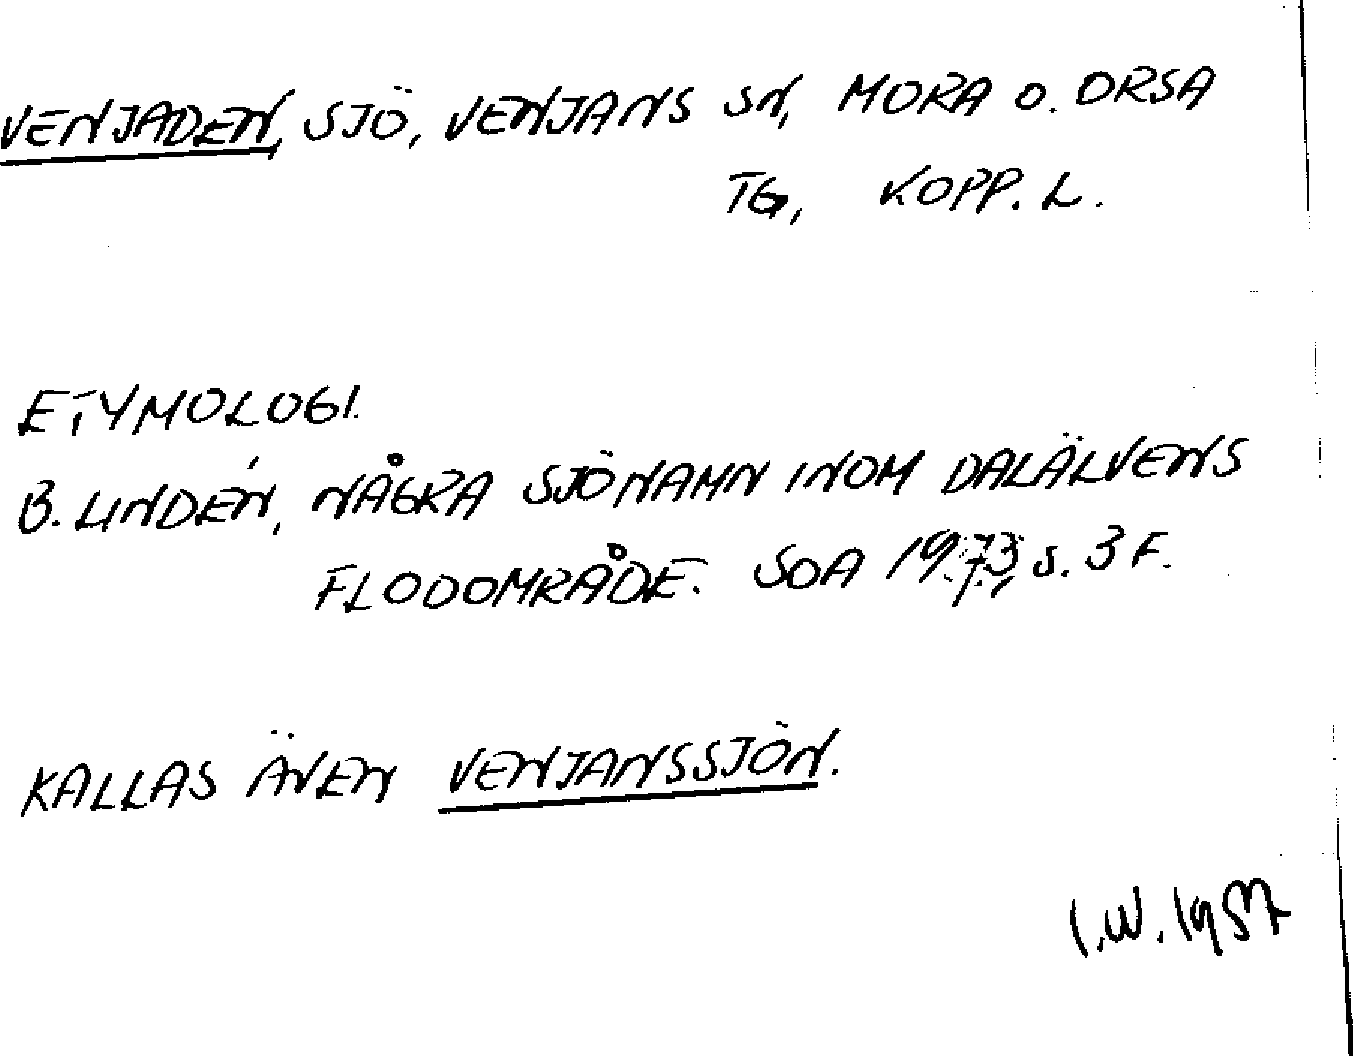 VENJADEN, SJÖ, VENJANS SN, MORA O. ORSA
TG, KOPP. L.
ETYMOLOGI.
B. LINDÉN, NÅGRA SJÖNAMN INOM DALÄLVENS
FLODOMRÅDE. SOA 1973 s. 3 F.
KALLAS ÄVEN VENJANSSJÖN.
I.W. 1987